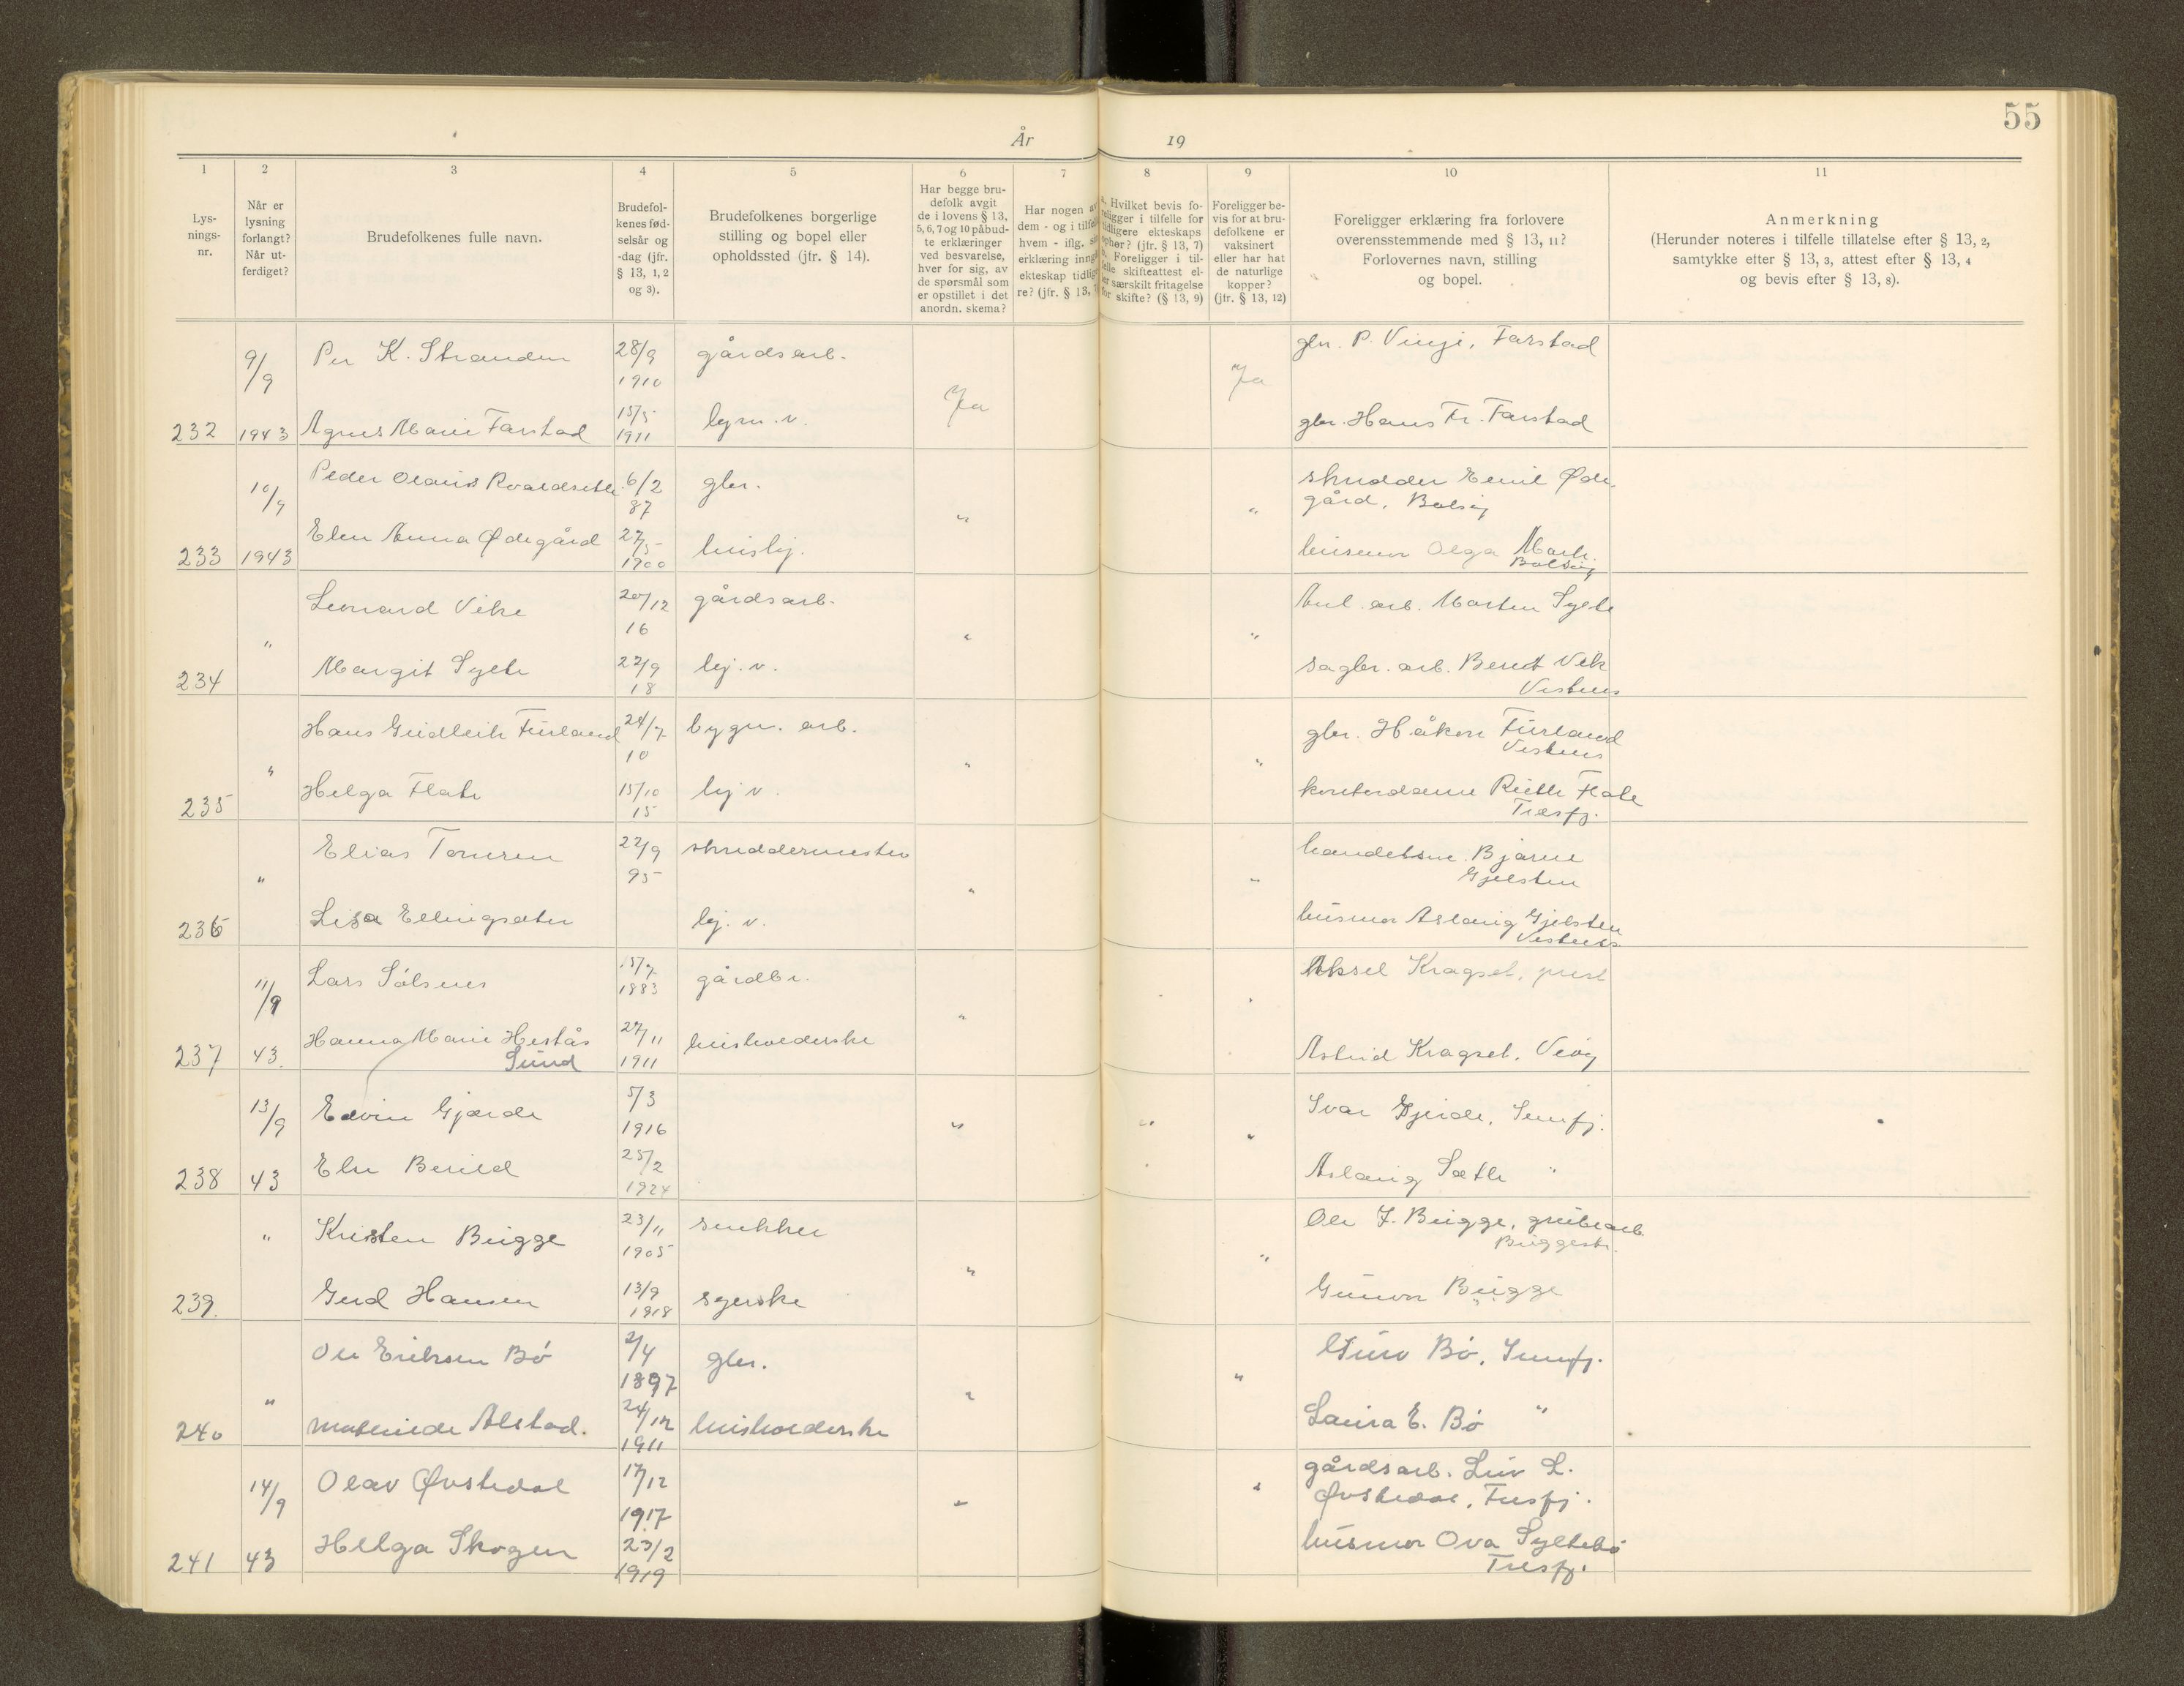 55
År 19
1 2 3 4 5 6 7 8 9 10 11
Lys-
nings-
nr.
Når er
lysning
forlangt?
Når ut-
ferdiget?
Brudefolkenes fulle navn.
Brudefol-
kenes fød-
selsår og
-dag (jfr.
§ 13, 1, 2
og 3).
Brudefolkenes borgerlige
stilling og bopel eller
opholdssted (jfr. § 14).
Har begge bru-
defolk avgit
de i lovens § 13,
5, 6, 7 og 10 påbud-
te erklæringer
ved besvarelse,
hver for sig, av
de spørsmål som
er opstillet i det
anordn. skema?
Har nogen av
dem - og i tilfelle
hvem - iflg.
erklæring inngå
ekteskap tidlige
re? (jfr. § 13,
Hvilket bevis fo-
religger i tilfelle for
tidligere ekteskaps
ophør? (jfr. § 13, 7)
Foreligger i til-
felle skifteattest el-
ler særskilt fritagelse
for skifte? (§ 13, 9)
Foreligger be-
vis for at bru-
defolkene er
vaksinert
eller har hat
de naturlige
kopper?
(jfr. § 13, 12)
Foreligger erklæring fra forlovere
overensstemmende med § 13, 11?
Forlovernes navn, stilling
og bopel.
Anmerkning
(Herunder noteres i tilfelle tillatelse efter § 13, 2,
samtykke efter § 13, 3, attest efter § 13, 4
og bevis efter § 13, 8).
9/9 Per K. Stranden 28/9 1910 gårdsarb. Ja Ja gbr. P. Vinje, Farstad
232 1943 Agnes Marie Farstad 15/5 1911 hjem.v. gbr. Hans Fr. Farstad
10/9 Peder Olaus Roaldseth 6/2 87 gbr. " " skredder Emil Øde-
gård, Bolsøy
233 1943 Elen Anna Ødegård 27/5 1900 hushj. husmor Olga
Bolsøy
" Lenard Vike 20/12 16 gårdsarb. " " Anl. arb. Morten Sylte
234 Margit Sylte 22/9 18 hj. v. sagbr. arb. Bernt Vik
Vestnes
" Hans Gudleik Furland 24/7 10 bygn. arb. " " gbr. Håkon Furland
Vestnes
235 Helga Flate 15/10 15 hj v. kontordame Ruth Flate
Tresfj.
" Elias Tomren 22/9 95 skreddermester " " handelsm. Bjarne
Gjelsten
236 Lisa Ellingsæter hj. v. husmor Aslaug Gjelsten
Vestnes
11/9 Lars Sølsnes 15/7 1883 gårdbr. " " Aksel Kragset, prest
237 43. Hanna Marie Hestås 27/11 1911 husholderske Astrid Kragset, Veøy
Sund
13/9 Edvin Gjærde 5/3 1916 " " " Ivar Gjerde, Innfj.
238 43 Else Berild 25/2 1924 Aslaug Sætre "
" Kristen Brügge 23/11 1905 snekker " " Ole J. Brügge, grubearb.
239. Gerd Hansen 13/9 1918 syerske Gunvor Brügge
" Ole Eriksen Bø 2/4 1897 gbr. " " Guro Bø, Innfj.
240 Mathilde Alstad. 24/12 1911 husholderske Laura E. Bø "
14/9 Olav Øvstedal 17/12 1917 " " gårdsarb. Liv L.
Øvstedal, Tresfj.
241 43 Helga Skogen 23/2 1919 husmor Ova Syltebø
Tresfj.